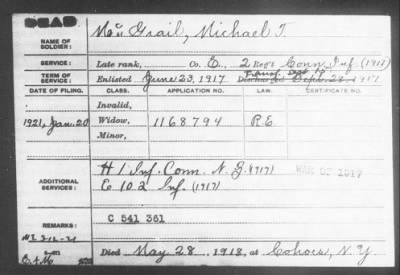 DEAD
NAME OF SOLDIER: McGrail, Michael T.
SERVICE: Late rank, Co. E, 2 Reg't Conn Inf. (1917)
TERM OF SERVICE: Enlisted June 23, 1917 Transf. Sept. 1917
DATE OF FILING. CLASS. APPLICATION NO. LAW. CERTIFICATE NO.
Invalid,
1921, Jan. 20 Widow, 1168794 R.E.
Minor,
ADDITIONAL SERVICES: H 1 Inf. Conn. N. G. (1917) WAR OF 1917
E 102 Inf. (1917)
REMARKS: C 541 361
Died May 28, 1918, at Cohoes, N.Y.